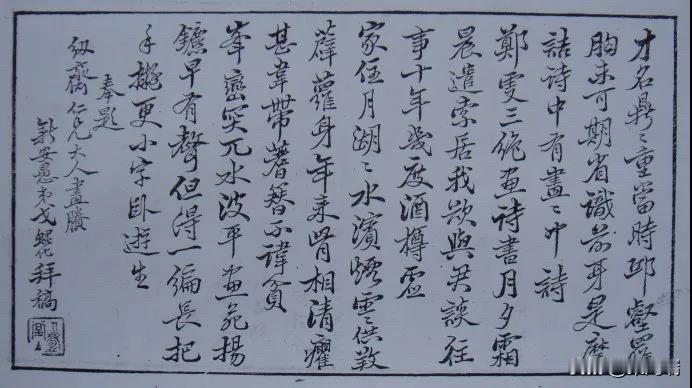 才名鼎々重當時邱壑羅
胸未可期省識前身是摩
詰詩中有畫々中詩
鄭虔三絕畫詩書月夕霜
晨遣索居我欲與君談往
事十年幾度酒樽虛
家住月湖々水濱煙雲供養
薜蘿身年来骨相清癯
甚韋帶蓍簪不諱貧
峯巒突兀水波平畫苑揚
鑣早有聲但得一編長把
手擬更小字臥遊生
奉題
紉齋仁兄大人畫賸
新安愚弟戈鯤化拜稿